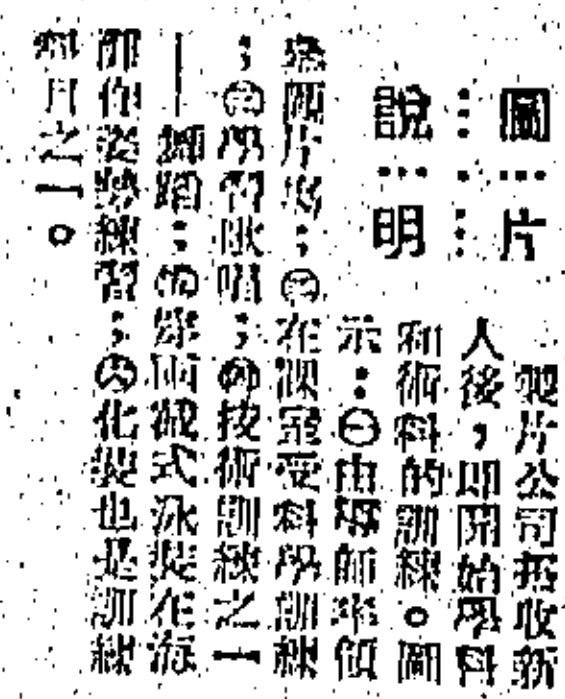 圖片
說明
製片公司招收新
人後，即開始學科
和術科的訓練。圖
示：㊀由導師率領
參觀片場；㊁在課室受科學訓練
；㊂學習歌唱；㊃技術訓練之一
——舞蹈；㊄穿兩截式泳裝在海
作姿勢練習；㊅化裝也是訓練
項目之一。